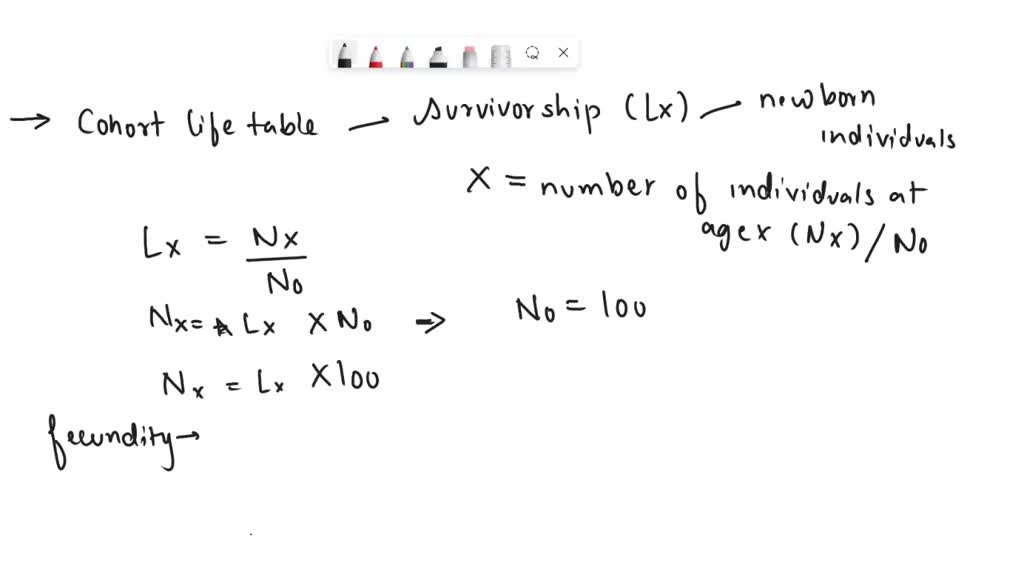 → Cohort life table — Survivorship (Lx) — newborn
individuals
X = number of individuals at
age x (Nx) / No
Lx = Nx / No
Nx = Lx X No ⇒ No = 100
Nx = Lx X 100
fecundity →